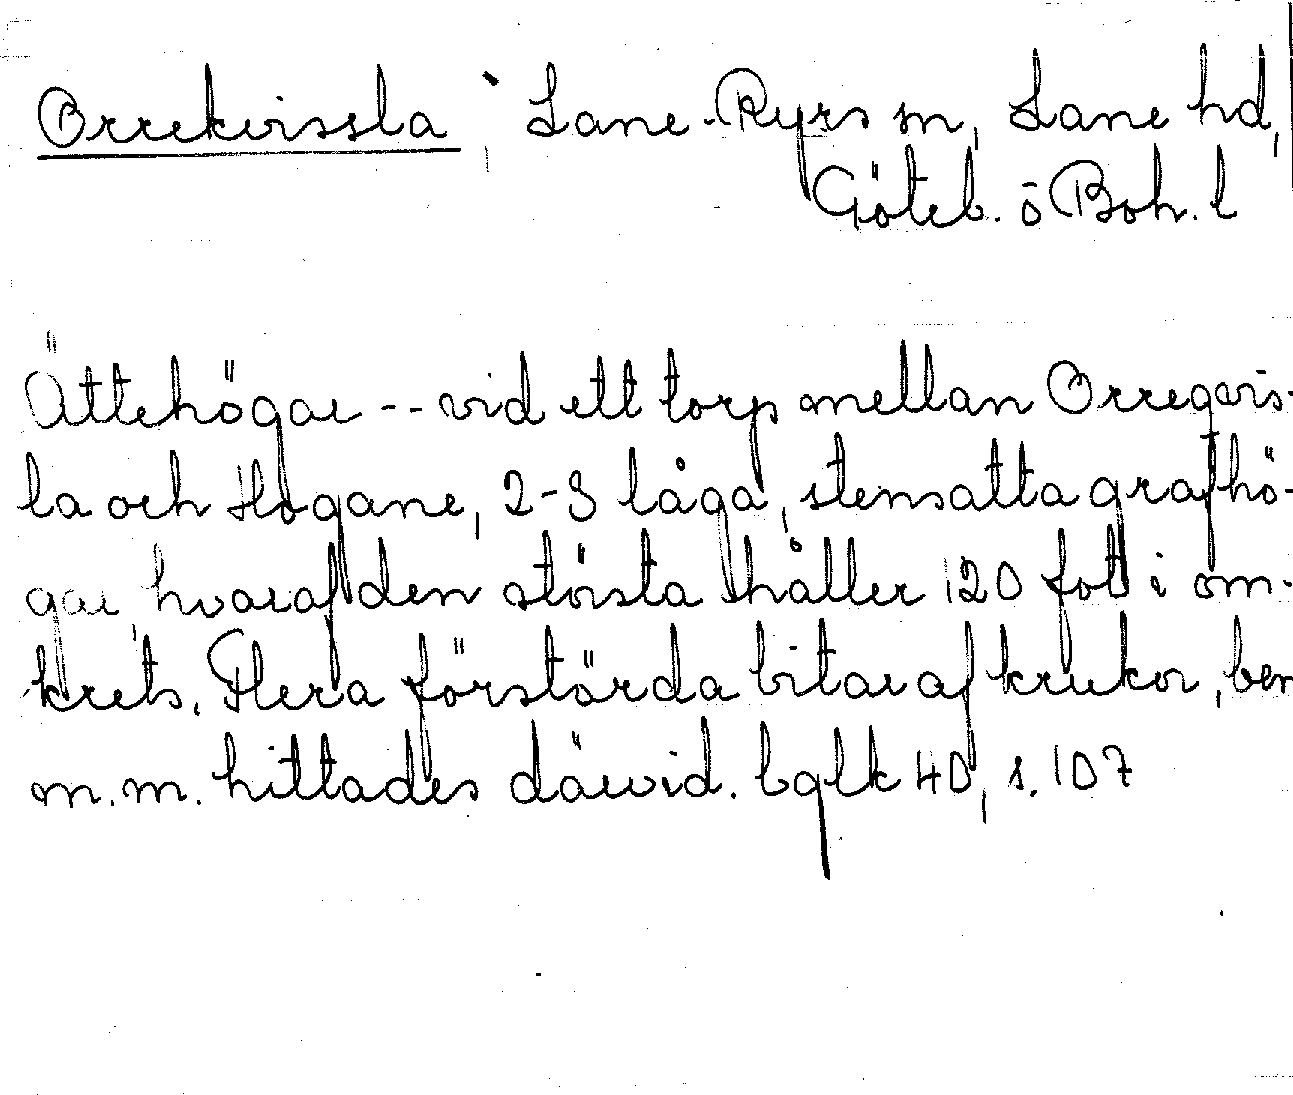 Orrekvissla, Lane-Ryrs sn, Lane hd,
Göteb. o Boh. l
Ättehögar -- vid ett torp mellan Orreqvis-
la och Hogane, 2-3 låga, stensatta grafhö-
gar, hvaraf den största håller 120 fot i om-
krets. Flera förstörda bitar af krukor, ben
m.m. hittades därvid. bqlk 40, s. 107